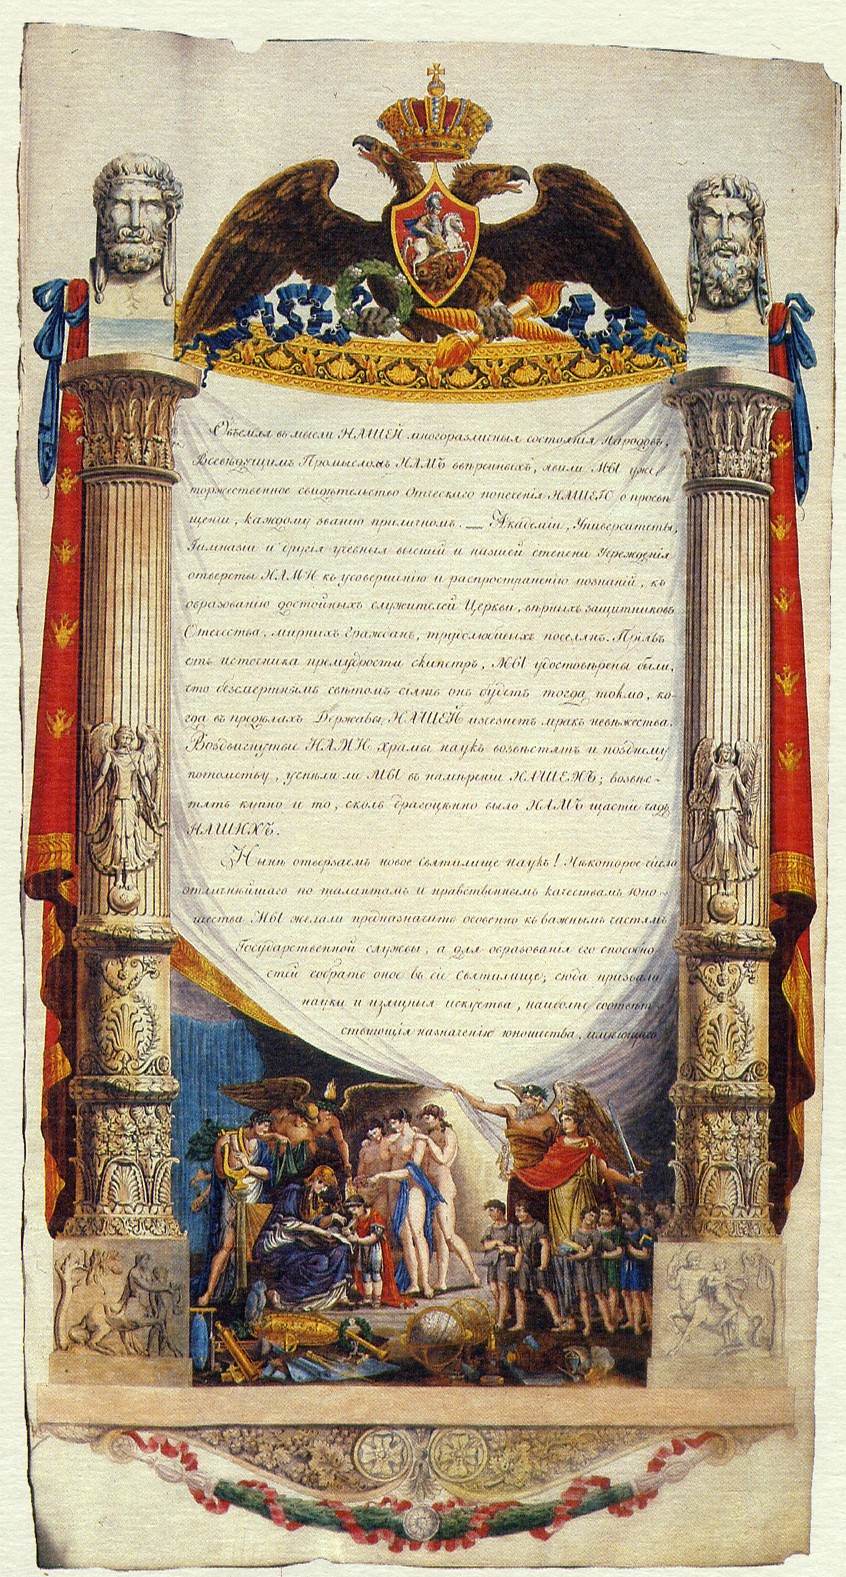 Объемля въ мысли НАШЕЙ многоразличныя состоянія Народовъ,
Всевѣдущимъ Промысломъ НАМЪ ввѣренныхъ, явили МЫ уже
торжественное свидѣтельство Отческаго попеченія НАШЕГО о просвѣ-
щеніи, каждому званію приличномъ. — Академіи, Университеты,
Гимназіи и другія учебныя высшей и низшей степени Учрежденія
отверсты НАМИ къ усовершенію и распространенію познаній, къ
образованію достойныхъ служителей Церкви, вѣрныхъ защитниковъ
Отечества, мирныхъ Гражданъ, трудолюбивыхъ поселянъ. Пріявъ
отъ источника премудрости скипетръ, МЫ удостовѣрены были,
что безсмертнымъ свѣтомъ сіять онъ будетъ тогда токмо, ко-
гда въ предѣлахъ Державы НАШЕЙ изчезнетъ мракъ невѣжества.
Воздвигнутые НАМИ храмы наукъ возвѣстятъ и позднему
потомству, успѣли ли МЫ въ намѣреніи НАШЕМЪ; возвѣ-
стятъ купно и то, сколь драгоцѣнно было НАМЪ щастіе чадъ
НАШИХЪ.
Нынѣ отверзаемъ новое святилище наукъ! Нѣкоторое число
отличнѣйшаго по талантамъ и нравственнымъ качествамъ юно-
шества МЫ желали предназначить особенно къ важнымъ частямъ
Государственной службы, а для образованія его способно
стей собрать оное въ сіе Святилище; сюда призвали
науки и изящныя искуства, наиболѣе соотвѣт
ствующія назначенію юношества, имѣющаго